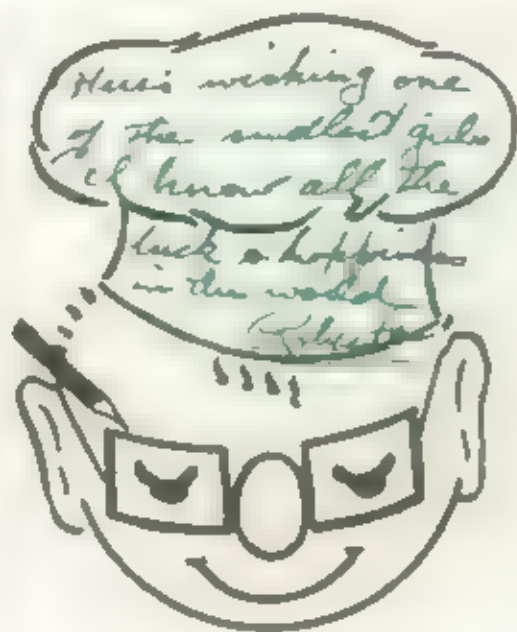 Here's wishing one
of the swellest girls
I know all the
luck & happiness
in the world